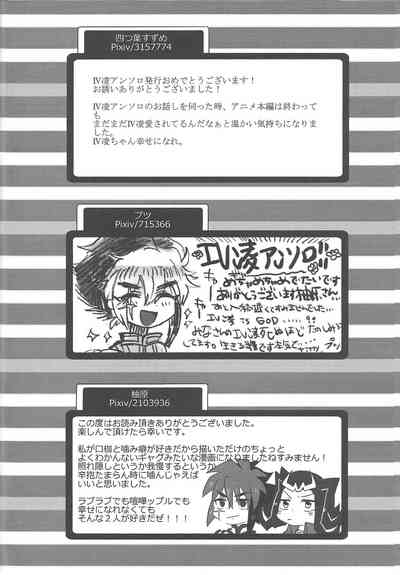 四つ葉すずめ
Pixiv/3157774
Ⅳ凌アンソロ発行おめでとうございます!
お誘いありがとうございました!
Ⅳ凌アンソロのお話しを伺った時、アニメ本編は終わって
も
まだまだⅣ凌愛されてるんだなぁと温かい気持ちになりま
した。
Ⅳ凌ちゃん幸せになれ。
ブツ
Pixiv/715366
エⅣ凌アンソロ!!
めちゃめちゃめでたいです
ありがとうございます柚原さん…
Ⅳ凌 is GOD……!!
みなさんのⅣ凌
柚原
Pixiv/2103936
この度はお読み頂きありがとうございました。
楽しんで頂けたら幸いです。
私が口枷と噛み癖が好きだから描いただけのちょっと
よくわかんないギャグみたいな漫画になりましたねすみません!
照れ隠しというか我慢するというか
辛抱たまらん時に噛んじゃえば
いいと思いました。
ラブラブでも喧嘩ップルでも
幸せになれなくても
そんな2人が好きだぜ!!!